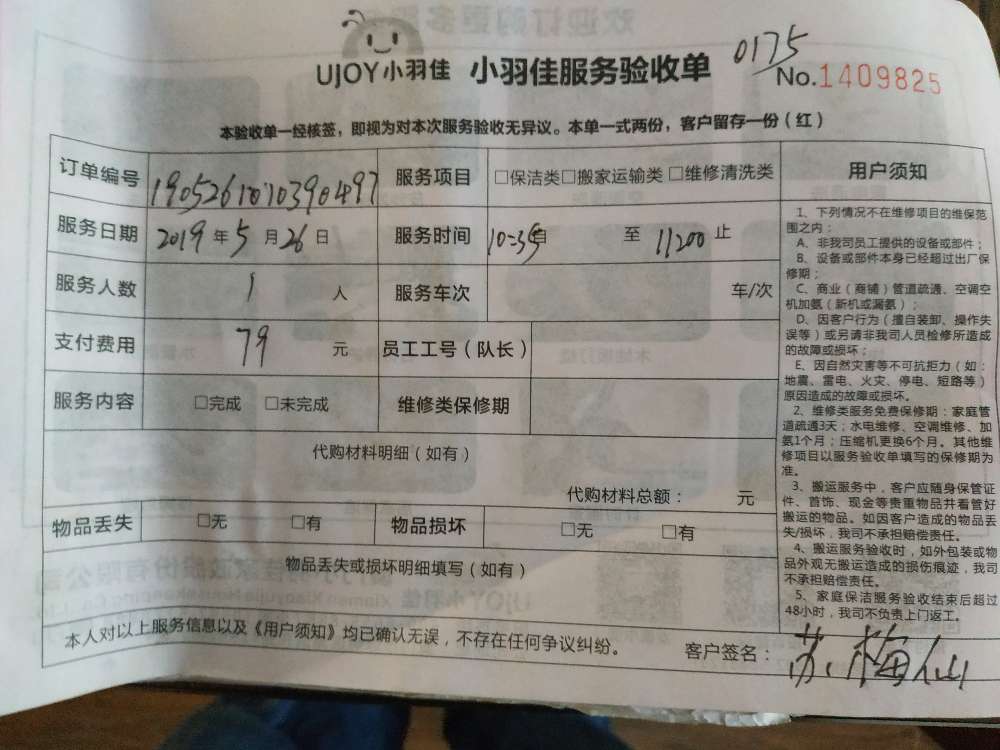 欢迎订购更多服务
UJOY小羽佳 小羽佳服务验收单 0175
No.1409825
本验收单一经核签，即视为对本次服务验收无异议。本单一式两份，客户留存一份（红）
订单编号 19052610710390497 服务项目 □保洁类□搬家运输类□维修清洗类
服务日期 2019年5月26日 服务时间 10:35 至 11200 止
服务人数 1 人 服务车次 车/次
支付费用 79 元 员工工号（队长）
服务内容 □完成 □未完成 维修类保修期
代购材料明细（如有）
代购材料总额： 元
物品丢失 □无 □有 物品损坏 □无 □有
物品丢失或损坏明细填写（如有）
本人对以上服务信息以及《用户须知》均已确认无误，不存在任何争议纠纷。 客户签名：苏梅仙
用户须知
1、下列情况不在维修项目的维保范
围之内：
A、非我司员工提供的设备或部件；
B、设备或部件本身已经超过出厂保
修期；
C、商业（商铺）管道疏通、空调空
机加氨（新机或漏氨）；
D、因客户行为（擅自装卸、操作失
误等）或另请非我司人员检修所造成
的故障或损坏；
E、因自然灾害等不可抗拒力（如：
地震、雷电、火灾、停电、短路等）
原因造成的故障或损坏。
2、维修类服务免费保修期：家庭管
道疏通3天；水电维修、空调维修、加
氨1个月；压缩机更换6个月。其他维
修项目以服务验收单填写的保修期为
准。
3、搬运服务中，客户应随身保管证
件、首饰、现金等贵重物品并看管好
搬运的物品。如因客户造成的物品丢
失/损坏，我司不承担赔偿责任。
4、搬运服务验收时，如外包装或物
品外观无搬运造成的损伤痕迹，我司
不承担赔偿责任。
5、家庭保洁服务验收结束后超过
48小时，我司不负责上门返工。